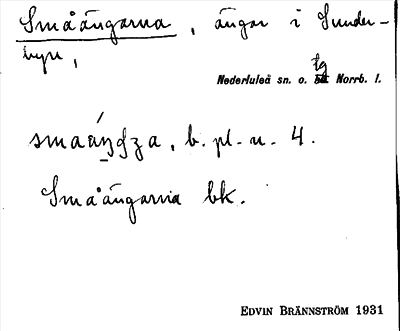 Småängarna, ängar i Sunder-
byn,
Nederluleå sn. o. tg Norrb. l.
b. pl. n. 4.
Småängarna bk.
EDVIN BRÄNNSTRÖM 1931